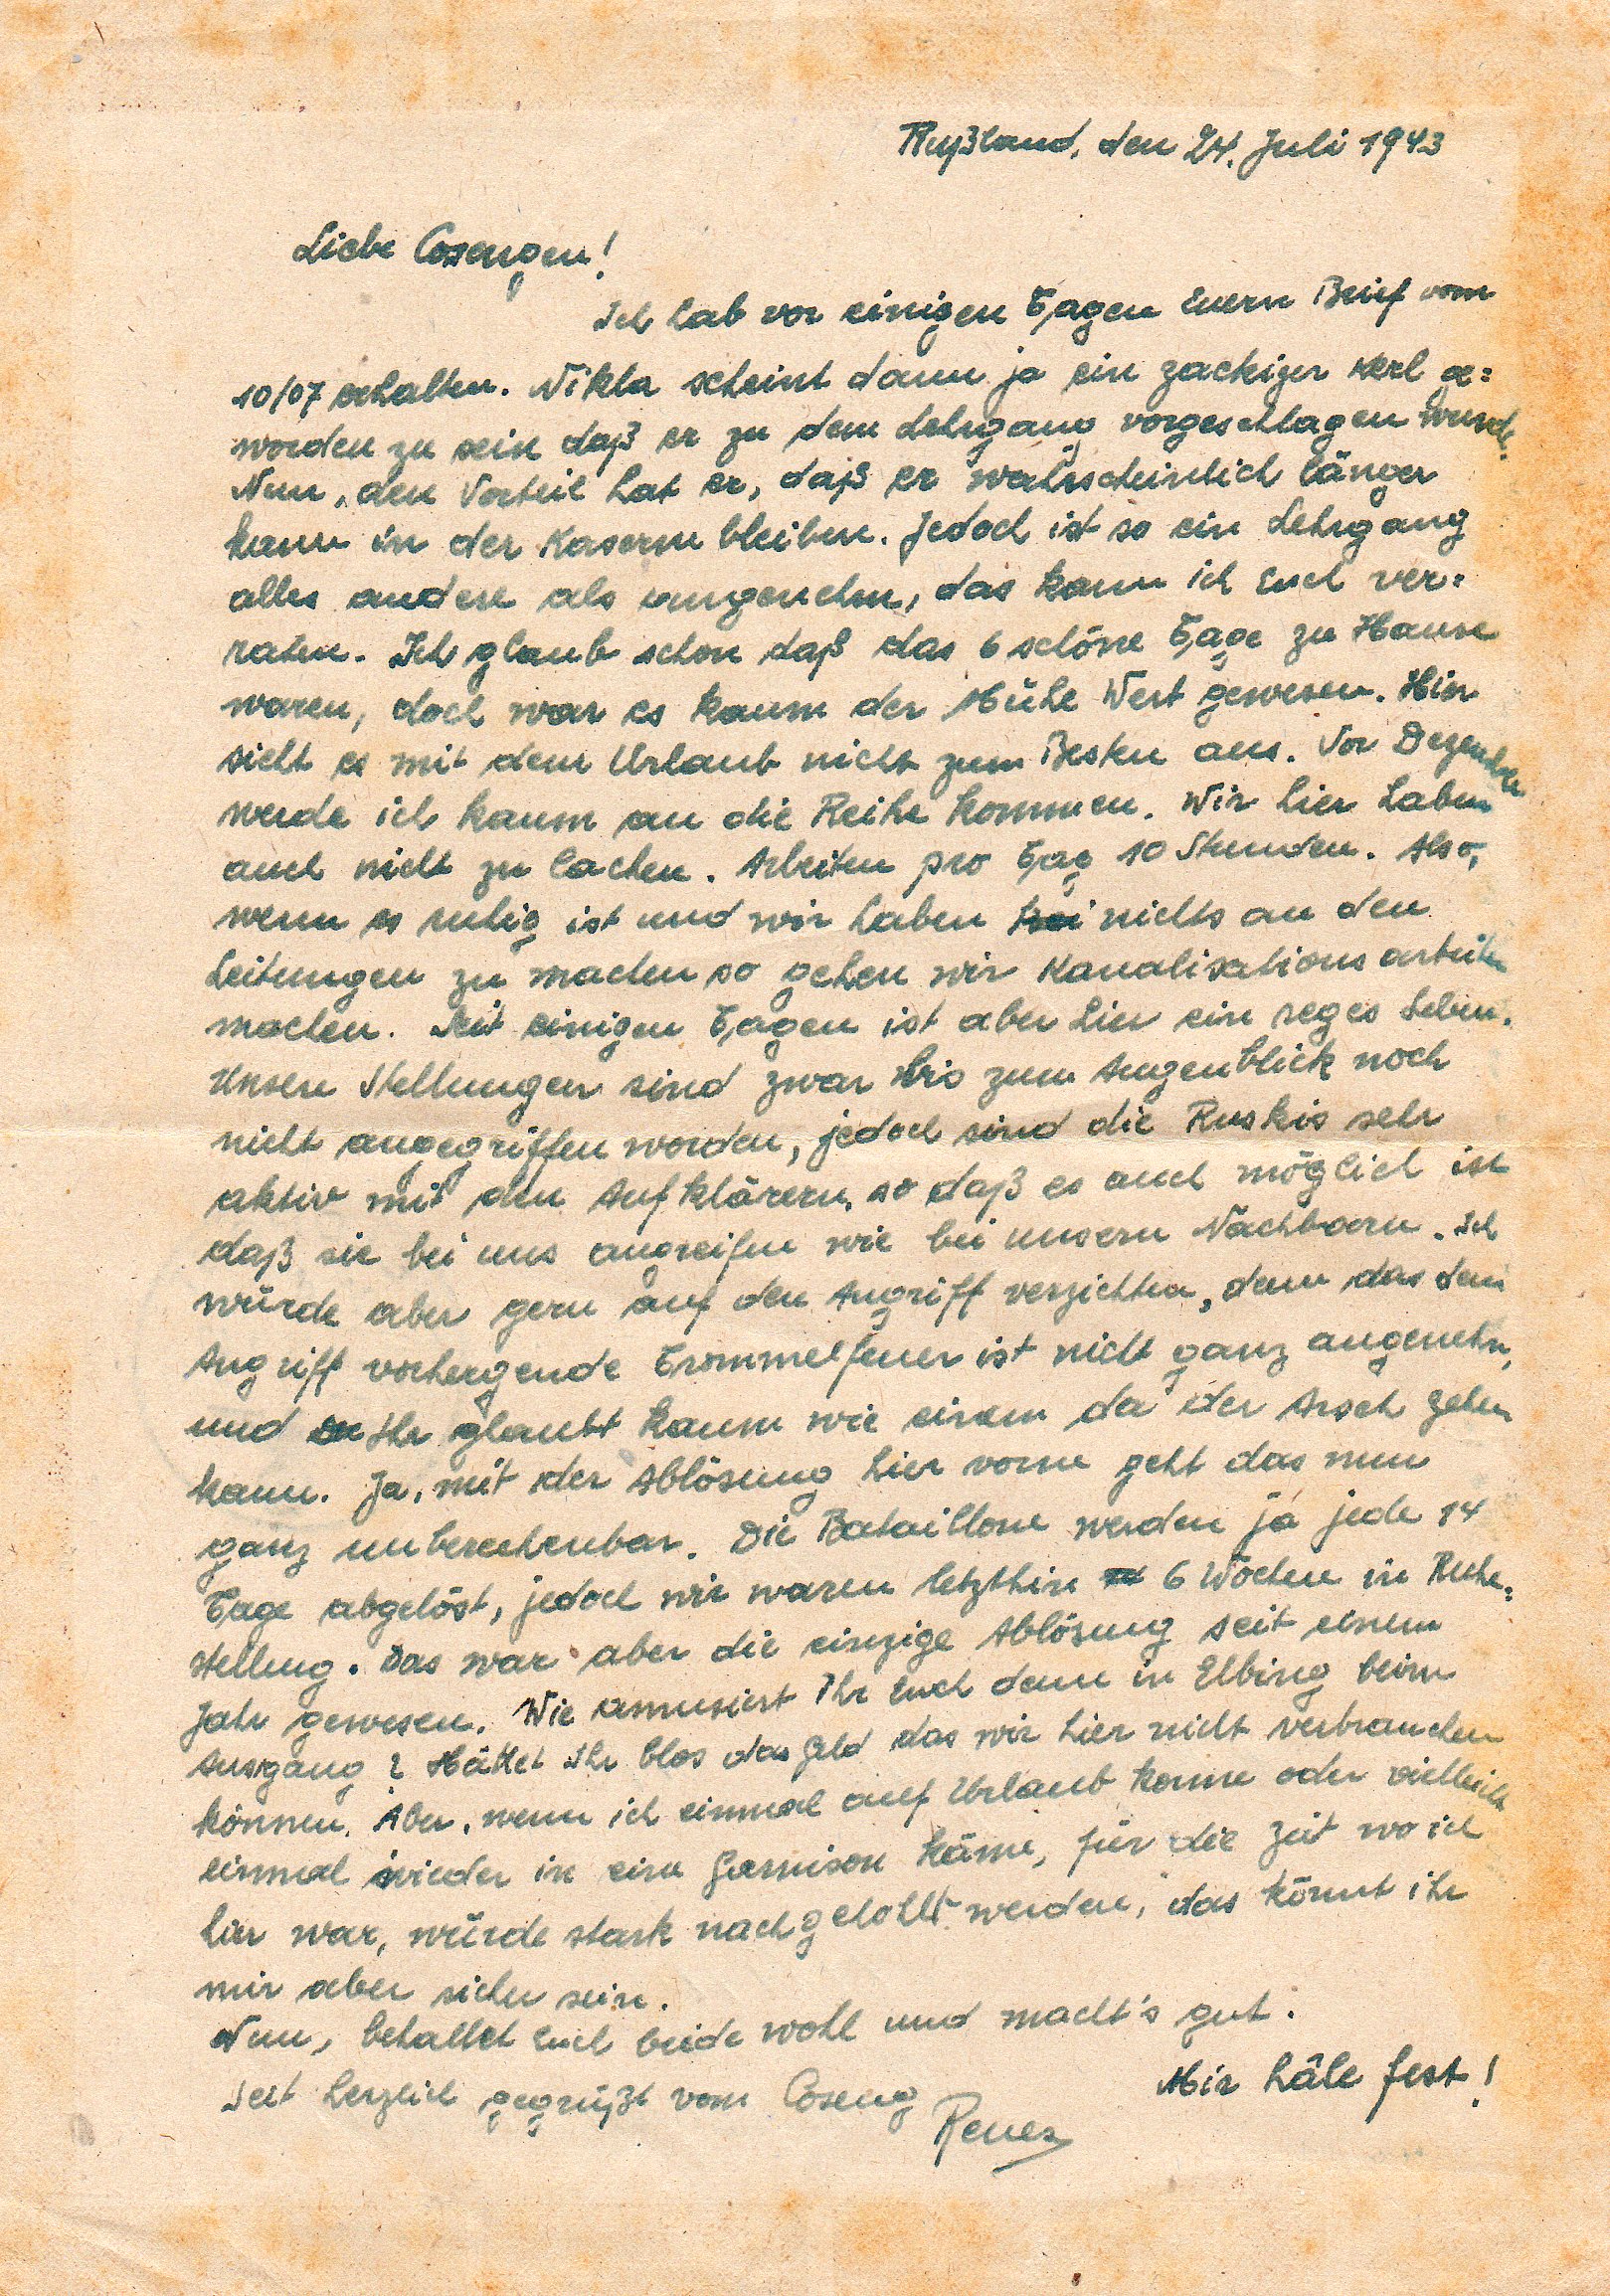 Rußland, den 24. Juli 1943
Liebe Cosengen!
Ich hab vor einigen Tagen Euern Brief vom
10/07 erhalten. Nikla scheint dann ja ein zackiger Kerl ge=
worden zu sein daß er zu dem Lehrgang vorgeschlagen wurde.
Nun, den Vorteil hat er, daß er wahrscheinlich länger
kann in der Kaserne bleiben. Jedoch ist so ein Lehrgang
alles andere als angenehm, das kann ich Euch ver=
raten. Ich glaub schon daß das 6 schöne Tage zu Hause
waren, doch war es kaum der Mühe Wert gewesen. Hier
sieht es mit dem Urlaub nicht zum Besten aus. Vor Dezember
werde ich kaum an die Reihe kommen. Wir hier haben
auch nicht zu lachen. Arbeiten pro Tag 10 Stunden. Also,
wenn es ruhig ist und wir haben nichts an den
Leitungen zu machen so gehen wir Kanalisationsarbeiten
machen. Seit einigen Tagen ist aber hier ein reges Leben.
Unsere Stellungen sind zwar bis zum Augenblick noch
nicht angegriffen worden, jedoch sind die Ruskis sehr
aktiv mit den Aufklärern, so daß es auch möglich ist
daß sie bei uns angreifen wie bei unsern Nachbarn. Ich
würde aber gern auf den Angriff verzichten, denn das dem
Angriff vorhergende Trommelfeuer ist nicht ganz angenehm,
und Ihr glaubt kaum wie einem da der Arsch gehen
kann. Ja, mit der Ablösung hier vorne geht das nun
ganz unberechenbar. Die Bataillone werden ja jede 14
Tage abgelöst, jedoch wir waren letzthin 6 Wochen in Ruhe=
stellung. Das war aber die einzige Ablösung seit einem
Jahr gewesen. Wie amusiert Ihr Euch denn in Elbing beim
Ausgang? Hättet Ihr blos das Geld das wir hier nicht verbrauchen
können. Aber, wenn ich einmal auf Urlaub komme oder vielleicht
einmal wieder in eine Garnison käme, für die Zeit wo ich
hier war, würde stark nachgehollt werden, das könnt ihr
mir aber sicher sein.
Nun, behaltet Euch beide wohl und macht's gut.
Seit herzlich gegrüßt vom Coseng
Mir hâle fest!
Rener